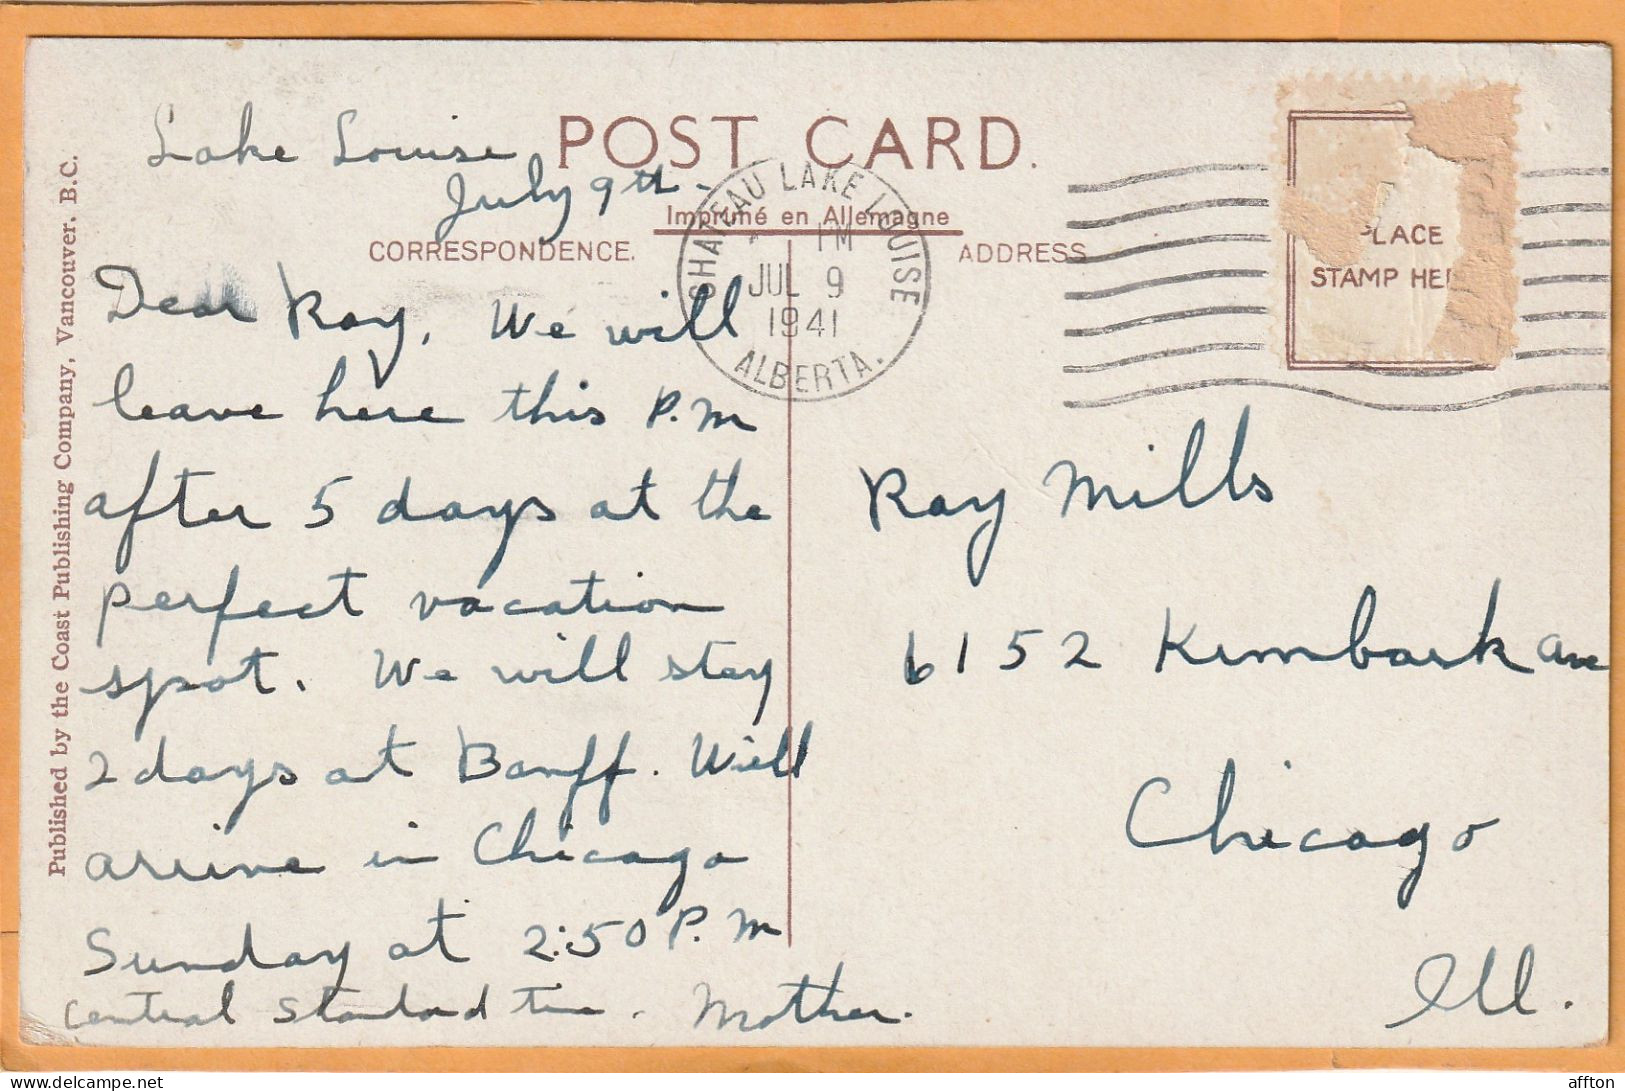 Lake Louise
July 9th-
POST CARD.
Imprimé en Allemagne
CORRESPONDENCE.
ADDRESS
CHATEAU LAKE LOUISE
PM
JUL 9
1941
ALBERTA.
PLACE
STAMP HE
Published by the Coast Publishing Company, Vancouver. B.C.
Dear Ray, We will
leave here this P.M
after 5 days at the
perfect vacation
spot. We will stay
2 days at Banff. Will
arrive in Chicago
Sunday at 2:50 P.M
Central Standard time. Mother.
Ray Mills
6152 Kimbark Ave
Chicago
Ill.
affton